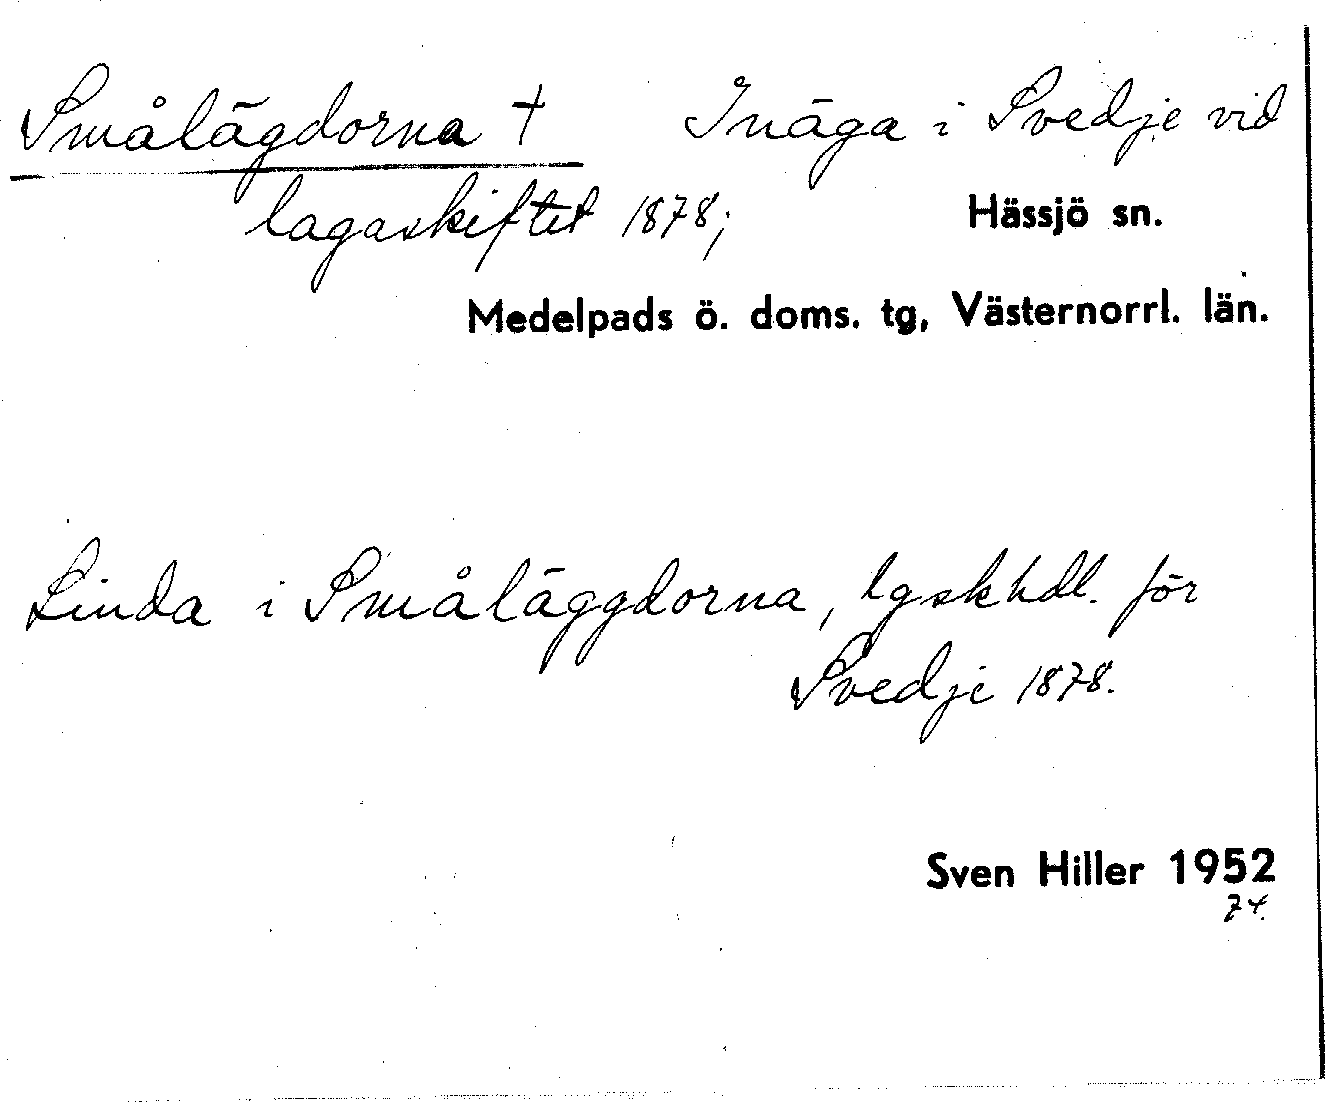 Smålägdorna † Inäga i Svedje vid
lagaskiftet 1878;
Hässjö sn.
Medelpads ö. doms. tg, Västernorrl. län.
Linda i Småläggdorna, lgskhdl. för
Svedje 1878.
Sven Hiller 1952
74.